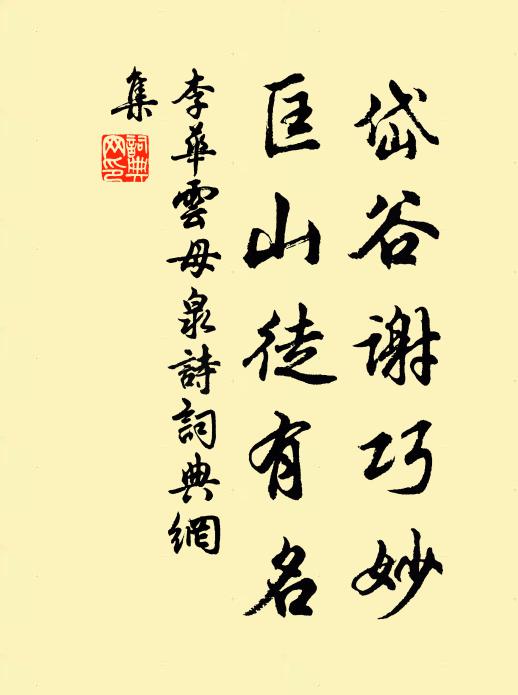 岱谷謝巧妙
匡山徒有名
李華雲母泉詩詞典網
集
詞典
网印